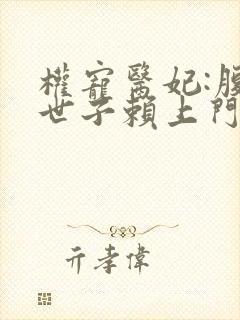 權寵醫妃:腹
世子賴上門
亓孝偉